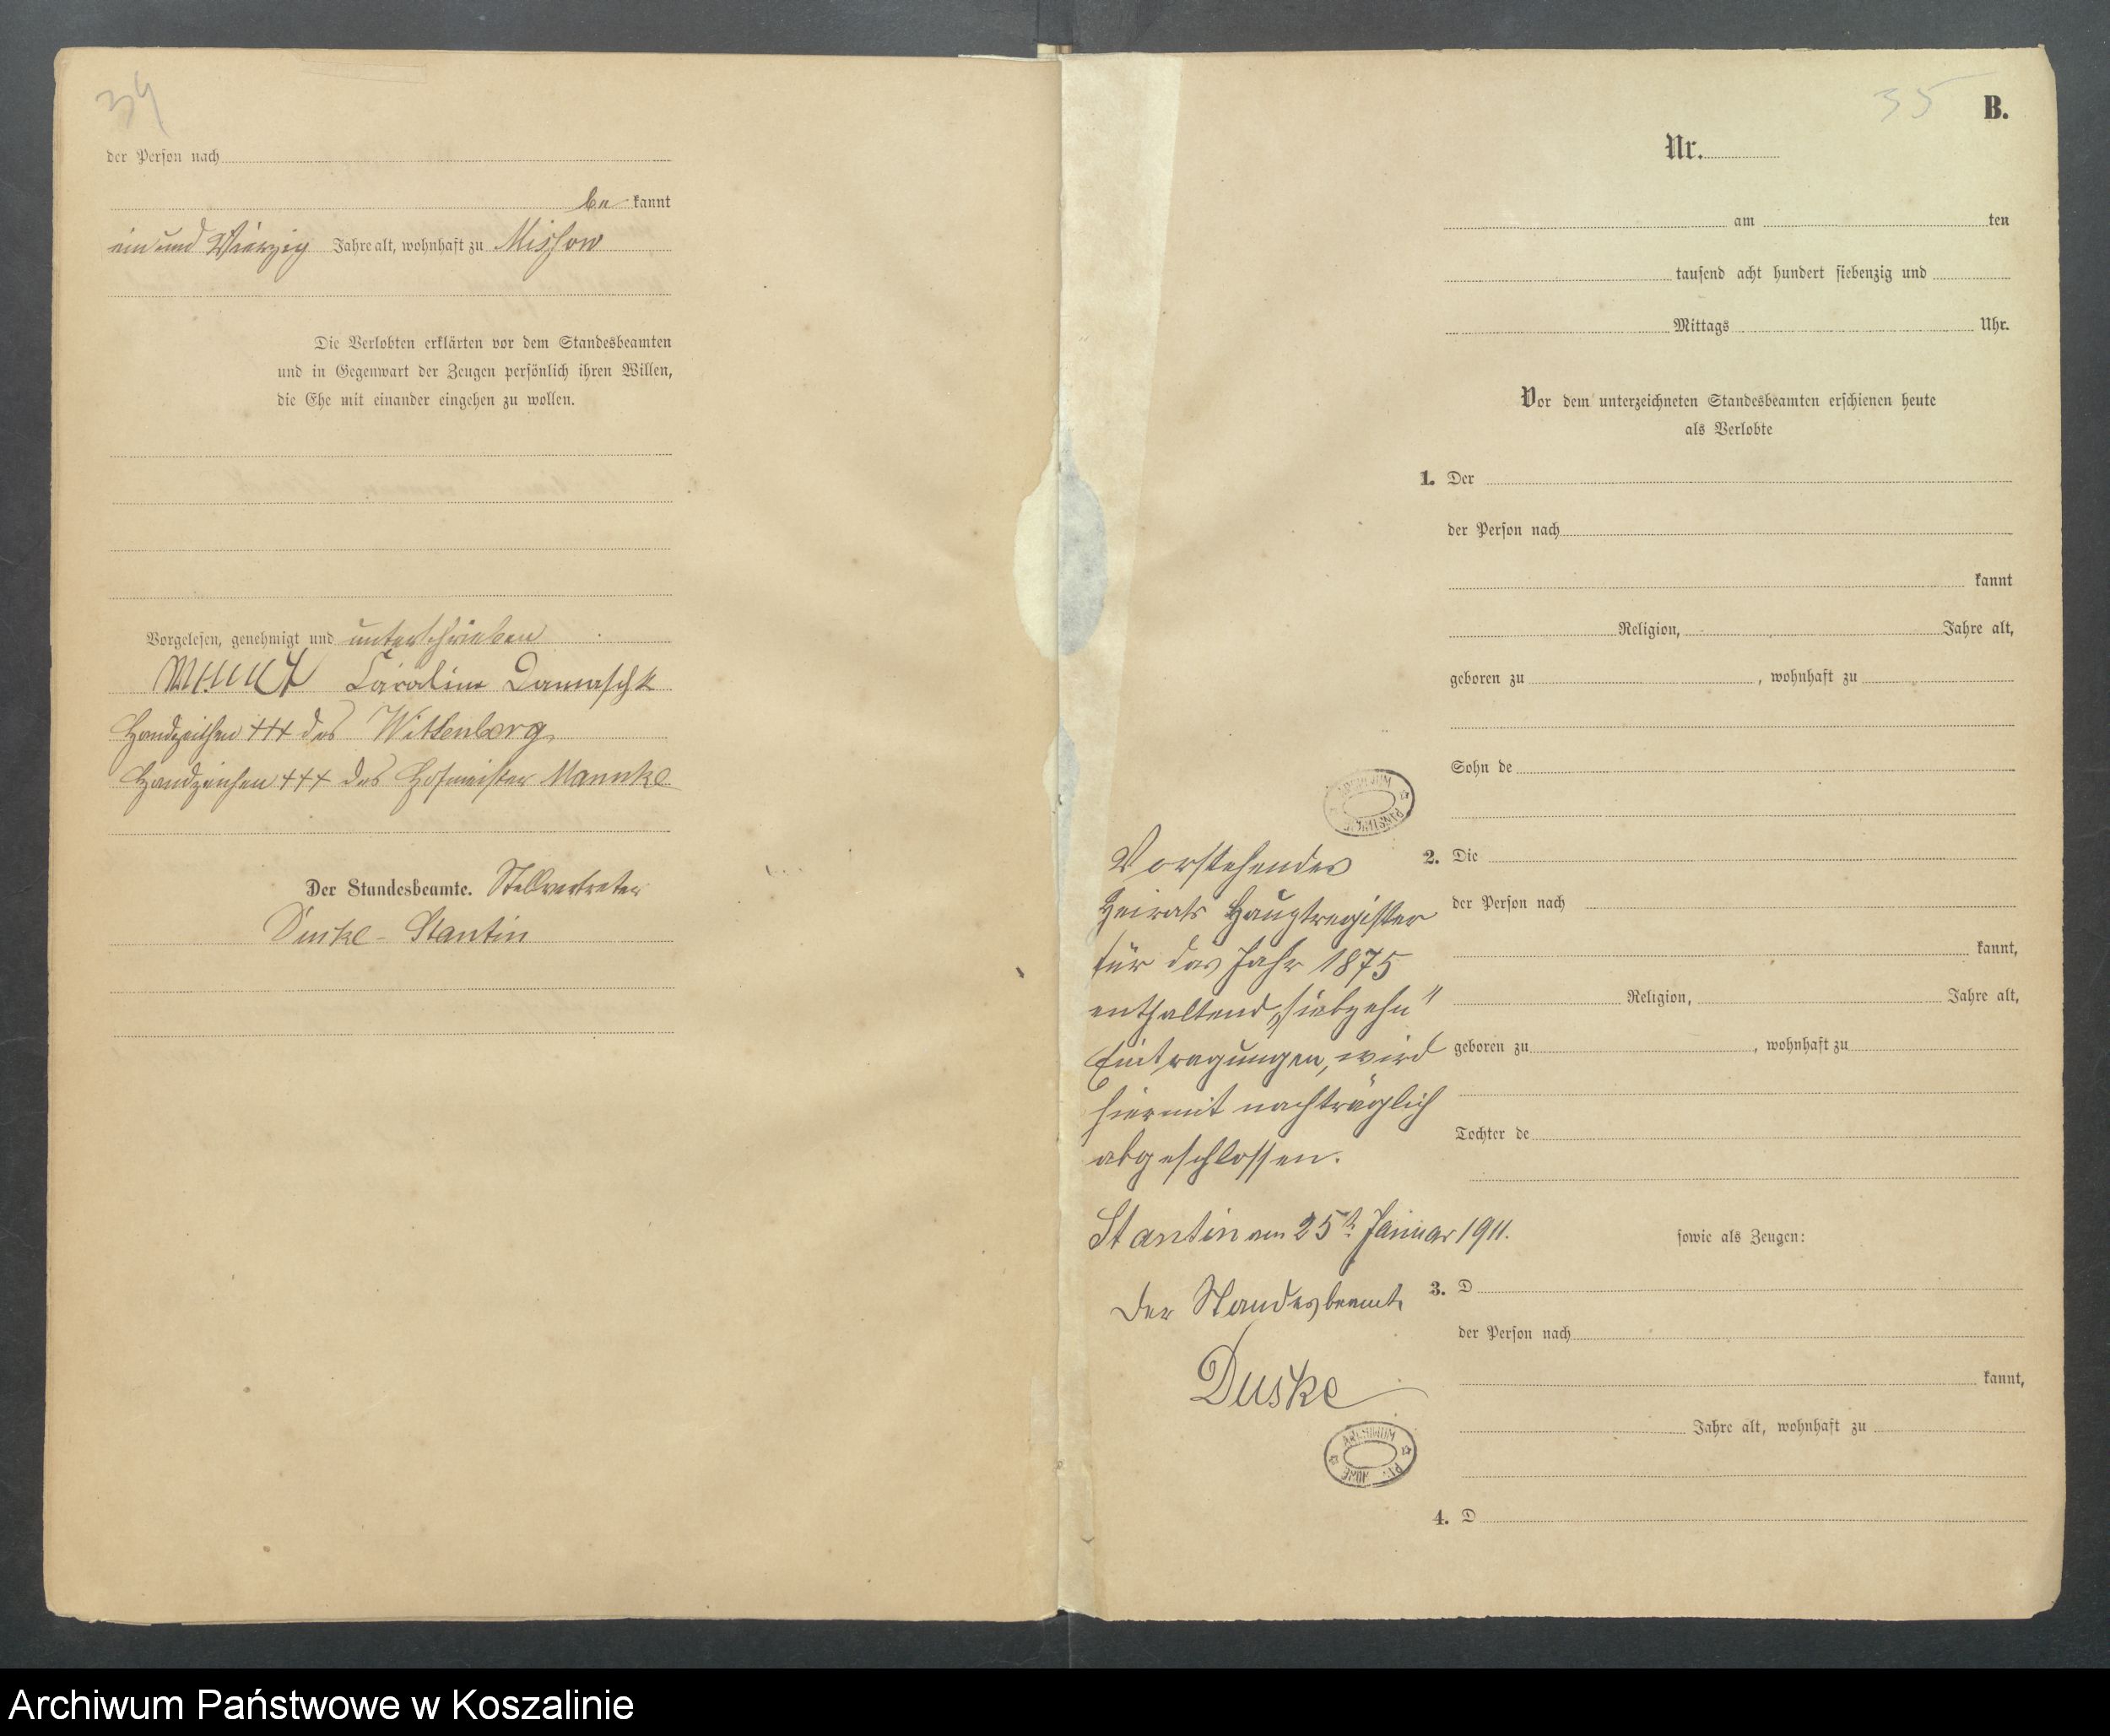 34
der Person nach
be kannt
ein und Vierzig Jahre alt, wohnhaft zu Missow
Die Verlobten erklärten vor dem Standesbeamten
und in Gegenwart der Zeugen persönlich ihren Willen,
die Ehe mit einander eingehen zu wollen.
Vorgelesen, genehmigt und unterschrieben
Caroline Damaschk
Handzeichen +++ des Wittenberg
Handzeichen +++ des Hofmeister Mannke
Der Standesbeamte. Stellvertreter
Stantin
35
B.
Nr.
am ten
tausend acht hundert siebenzig und
Mittags Uhr.
Vor dem unterzeichneten Standesbeamten erschienen heute
als Verlobte
1. Der
der Person nach
kannt
Religion, Jahre alt,
geboren zu , wohnhaft zu
Sohn de
2. Die
der Person nach
kannt,
Religion, Jahre alt,
geboren zu , wohnhaft zu
Tochter de
sowie als Zeugen:
3. D
der Person nach
kannt,
Jahre alt, wohnhaft zu
4. D
Vorstehendes
Heirats Hauptregister
für das Jahr 1875
enthaltend „siebzehn"
Eintragungen, wird
hiermit nachträglich
abgeschlossen.
Stantin am 25t. Januar 1911.
Der Standesbeamte
Duske
ARCHIWUM
Archiwum Państwowe w Koszalinie